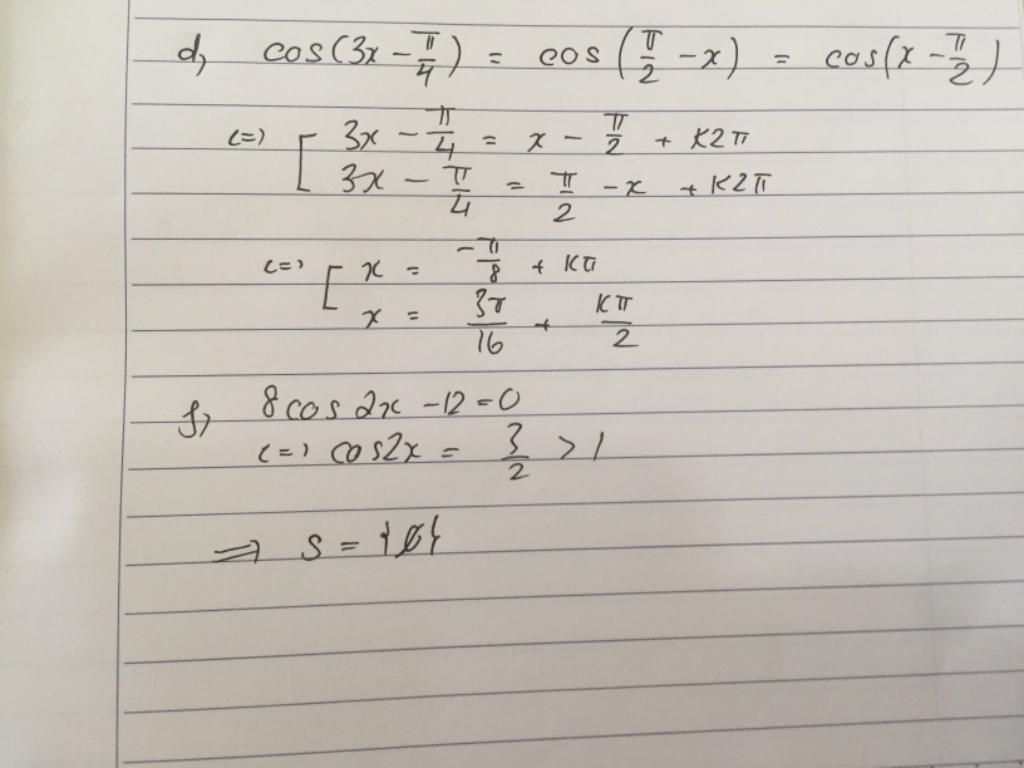 d, cos(3x - π/4) = cos(π/2 - x) = cos(x - π/2)
<=> [ 3x - π/4 = x - π/2 + K2π
3x - π/4 = π/2 - x + K2π
<=> [ x = -π/8 + Kπ
x = 3π/16 + Kπ/2
f, 8cos2x - 12 = 0
<=> cos2x = 3/2 > 1
=> S = {∅}